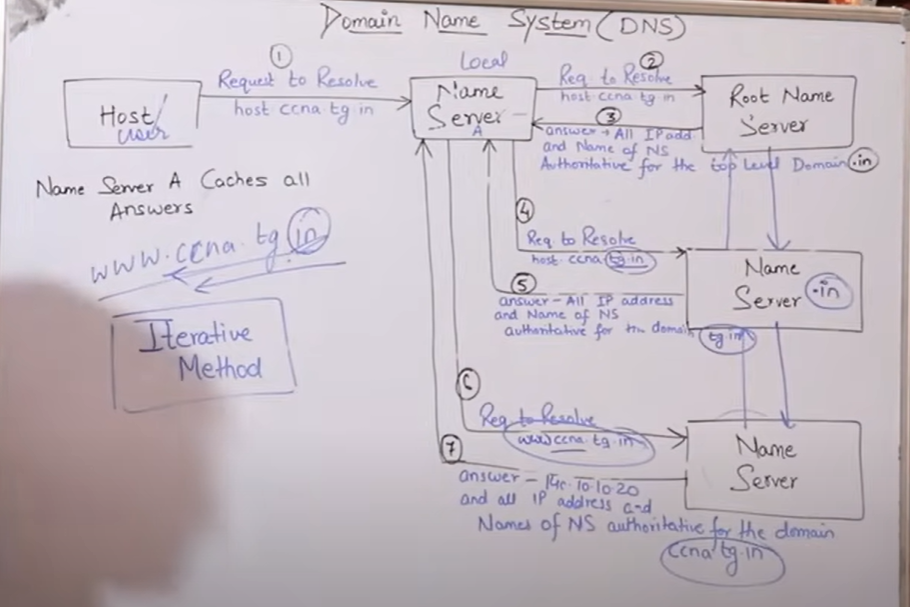 Domain Name System (DNS)
①
Request to Resolve
host ccna tg in
Host/
user
Local
Name
Server
A
②
Req. to Resolve
host ccna tg in
③
answer → All IP add
and Name of NS
Authoritative for the top Level Domain .in
Root Name
Server
Name Server A Caches all
Answers
www.ccna.tg.in
Iterative
Method
④
Req to Resolve
host ccna tg.in
⑤
answer - All IP address
and Name of NS
authoritative for the domain tg in
Name
Server .in
⑥
Req to Resolve
www ccna.tg.in
⑦
answer - 10.10.20
and all IP address and
Names of NS authoritative for the domain
ccna tg.in
Name
Server